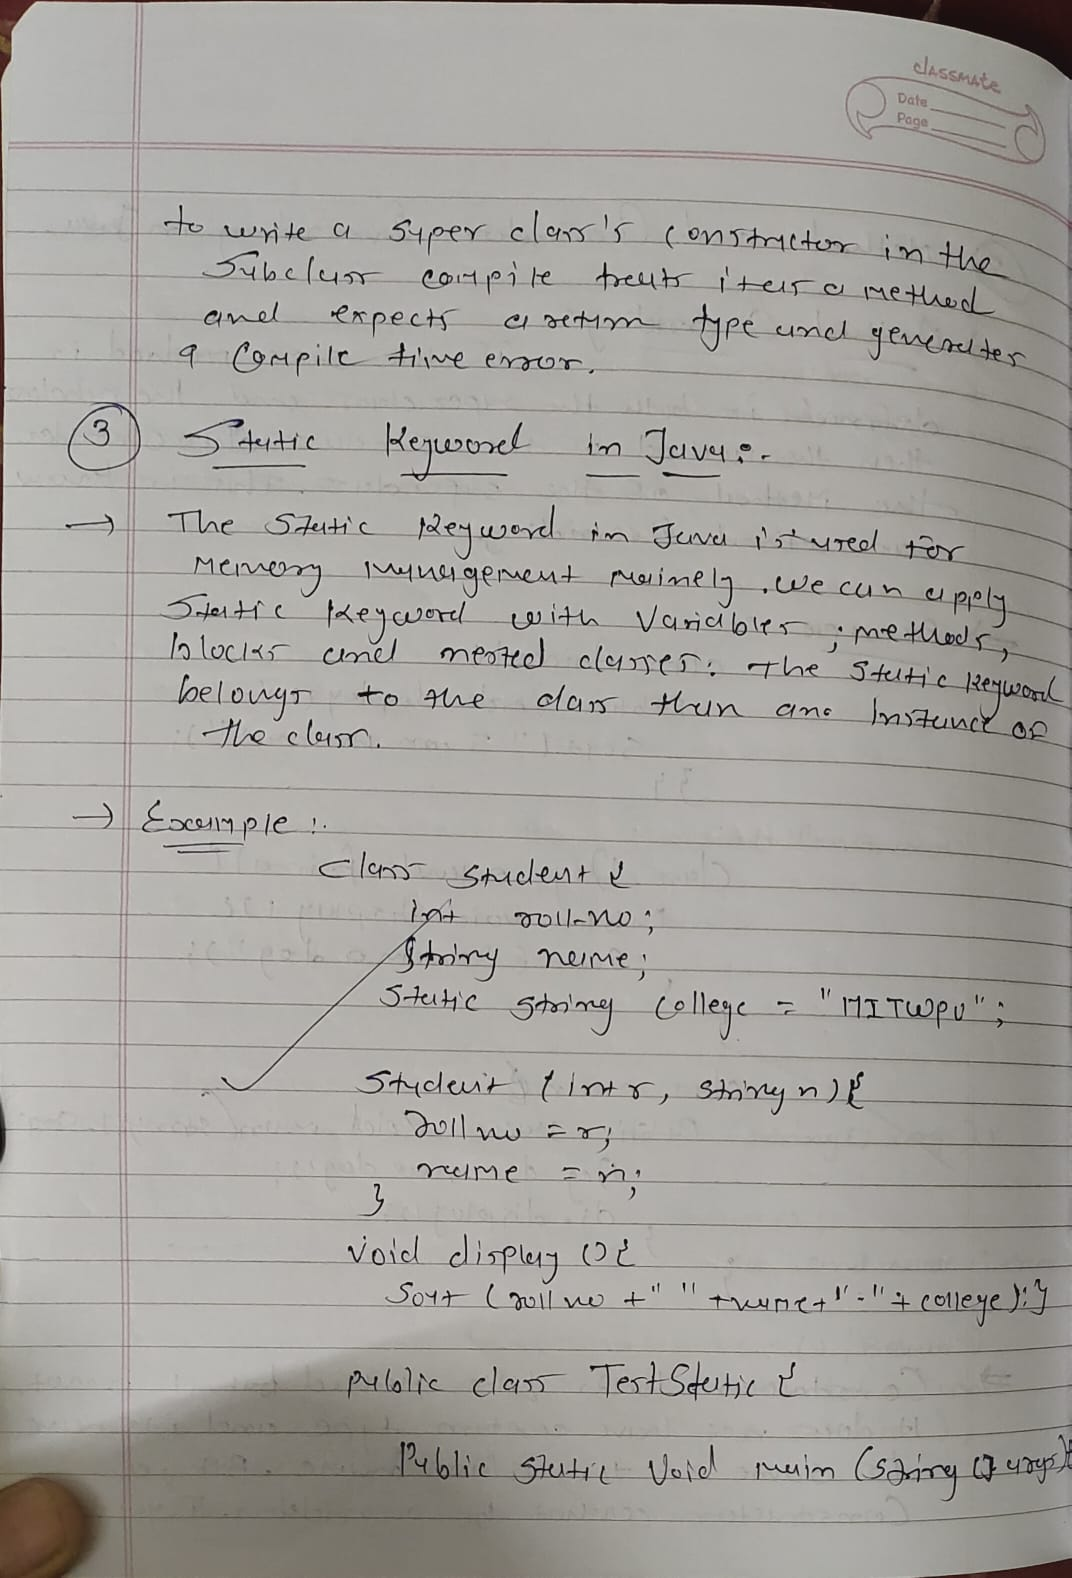 classmate
Date
Page
to write a super class's constructor in the
subclass compile treats it as a method
and expects a return type and generates
a compile time error.
3 Static Keyword in Java :-
→ The Static Keyword in Java is used for
Memory management mainely. we can apply
Static Keyword with Variables, methods,
blocks and nested classes. The Static keyword
belongs to the class than ano Instance of
the class.
→ Example :-
Class Student {
int roll-no;
String name;
Static String College = "MITWPU";
Student (int r, string n) {
rollno = r;
name = n;
}
void display () {
Sout (rollno + " " + name + " - " + college ); }
public class TestStatic {
Public static void main (String [] args) {